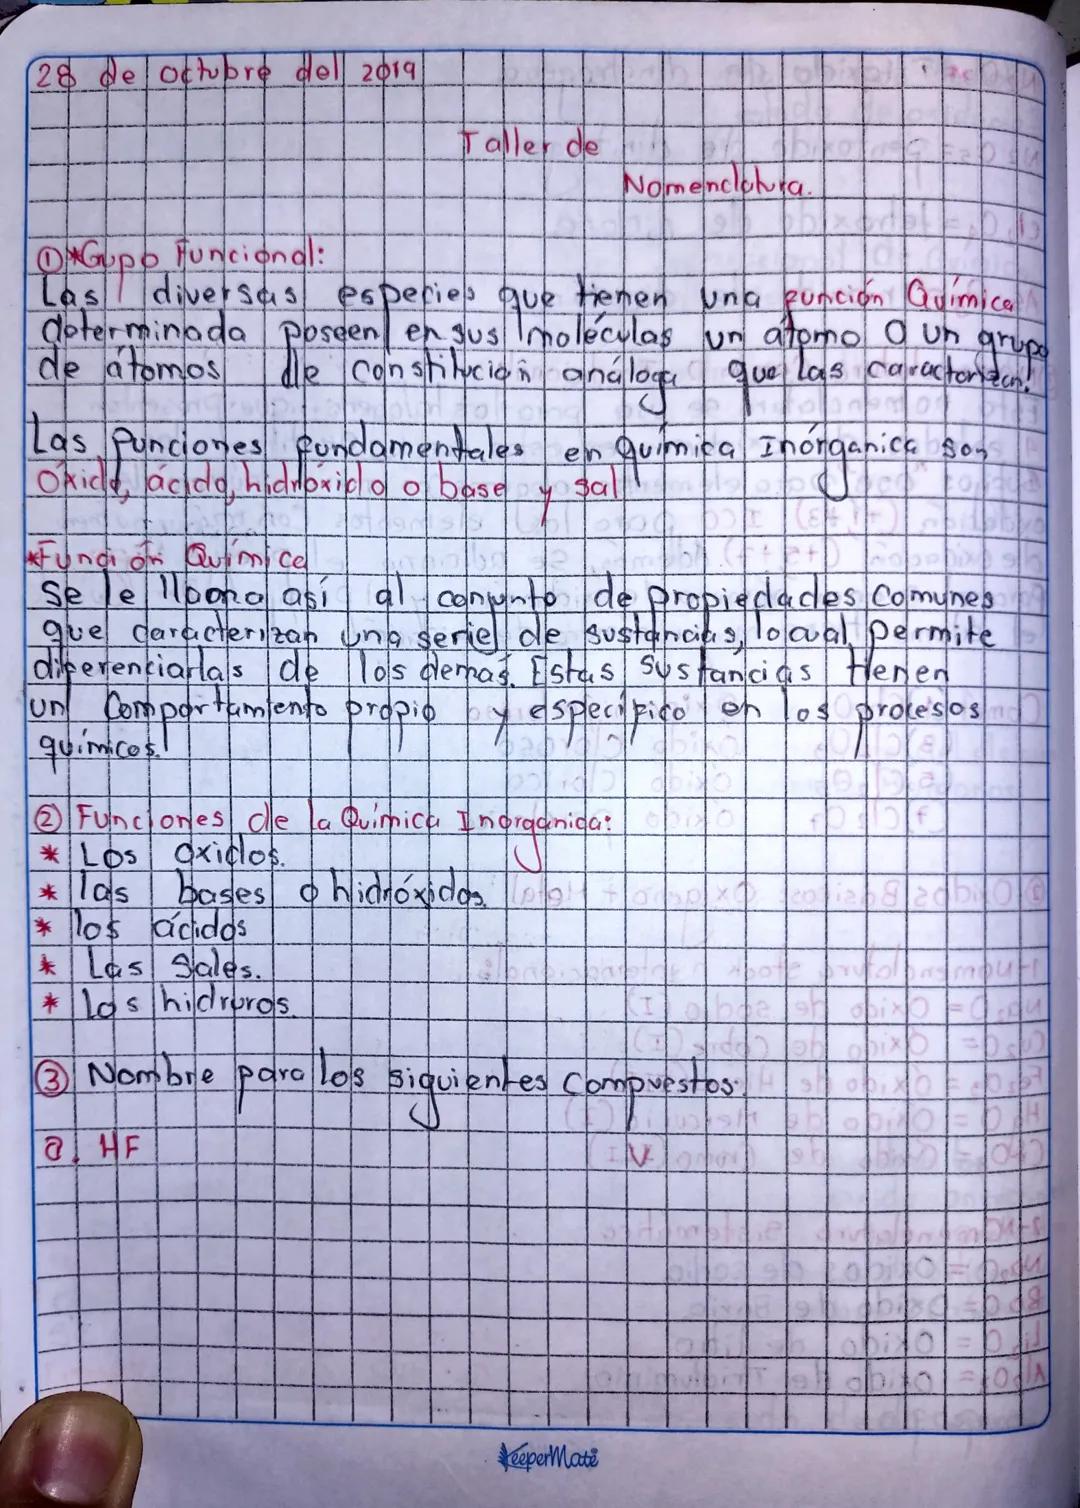 28 de octubre del 2019
Taller de
Nomenclatura.
① *Grupo Funcional:
Las diversas especies que tienen una función Química
determinada poseen en sus moléculas un átomo o un grupo
de átomos de constitución análoga que las caracterizan.
Las funciones fundamentales en química Inórganica son
Óxido, ácido, hidróxido o base y sal
*Función Química
Se le llama así al conjunto de propiedades Comunes
que caracterizan una serie de sustancias, lo cual permite
diferenciarlas de los demás. Estas sustancias tienen
un Comportamiento propio y específico en los procesos
químicos.
② Funciones de la Química Inorgánica:
* Los oxidos.
* las bases o hidróxidos
* los ácidos
* Las Sales.
* Los hidruros.
③ Nombre para los siguientes Compuestos:
a. HF
KeeperMate